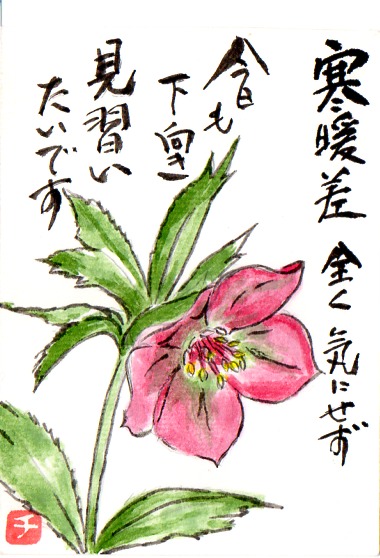 寒暖差 全く気にせず
今日も
下向き
見習い
たいです
チ